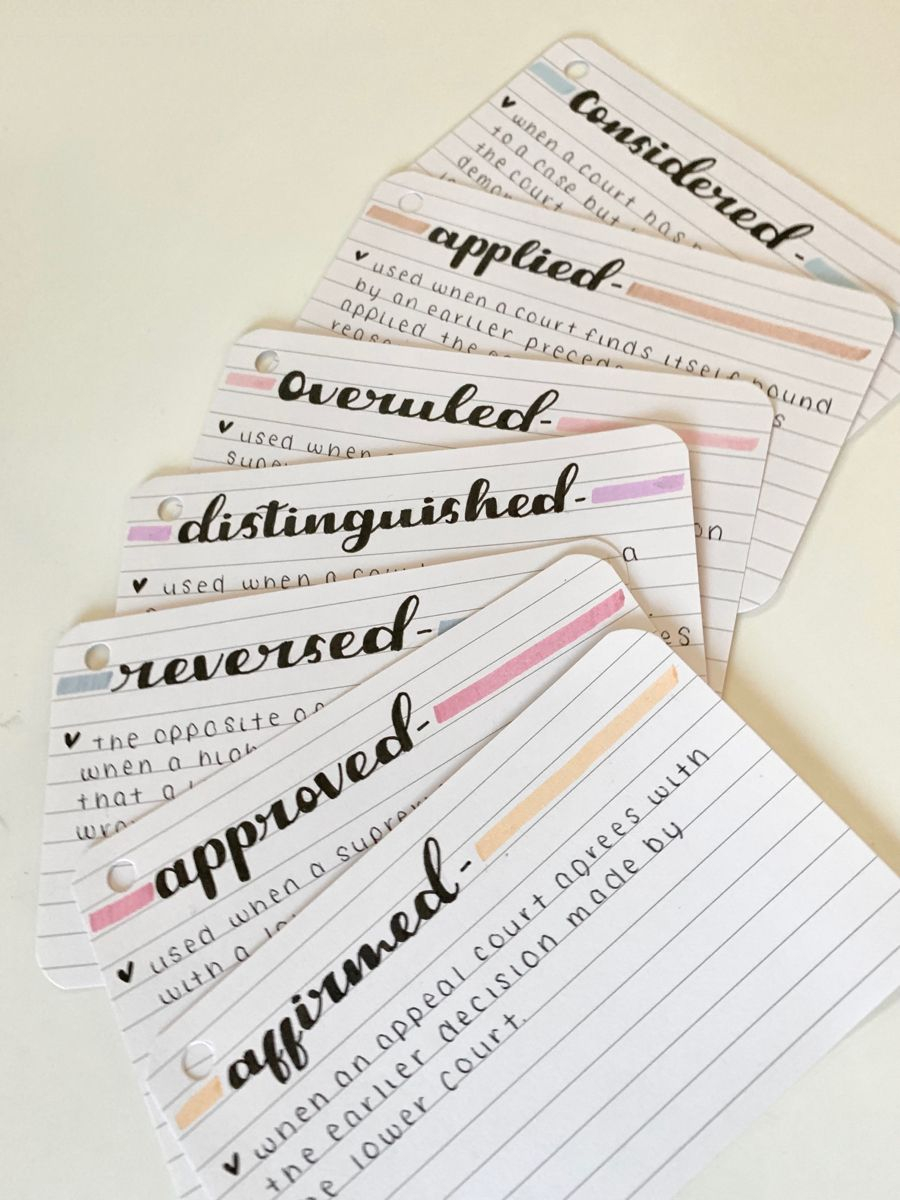 considered-
♥ when a court has
to a case but
the court
applied-
♥ used when a court finds itself bound
by an earlier
applied the
overuled-
♥ used when
distinguished-
♥ used when a
on
a
reversed-
♥ the opposite
when a
that a
approved-
♥ used when a
with a
affirmed-
♥ when an appeal court agrees with
the earlier decision made by
lower court.